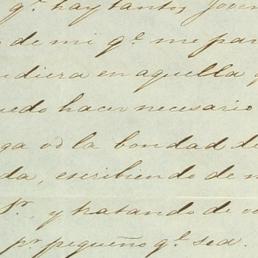 qe. hay tantos joven
de mi qe. me par
udiera en aquella
uedo hacer necesario
ga vd la bondad de
da, escribiendo de m
Sr. y tratando de
pr. pequeño qe. sea.